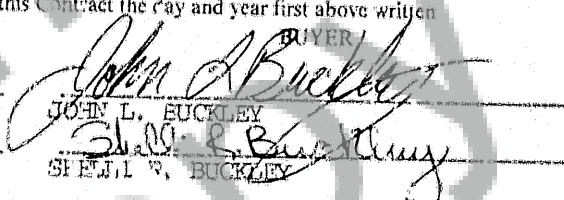 this Contract the day and year first above written
BUYER
John L Buckley
JOHN L. BUCKLEY
R. Buckley
BUCKLEY